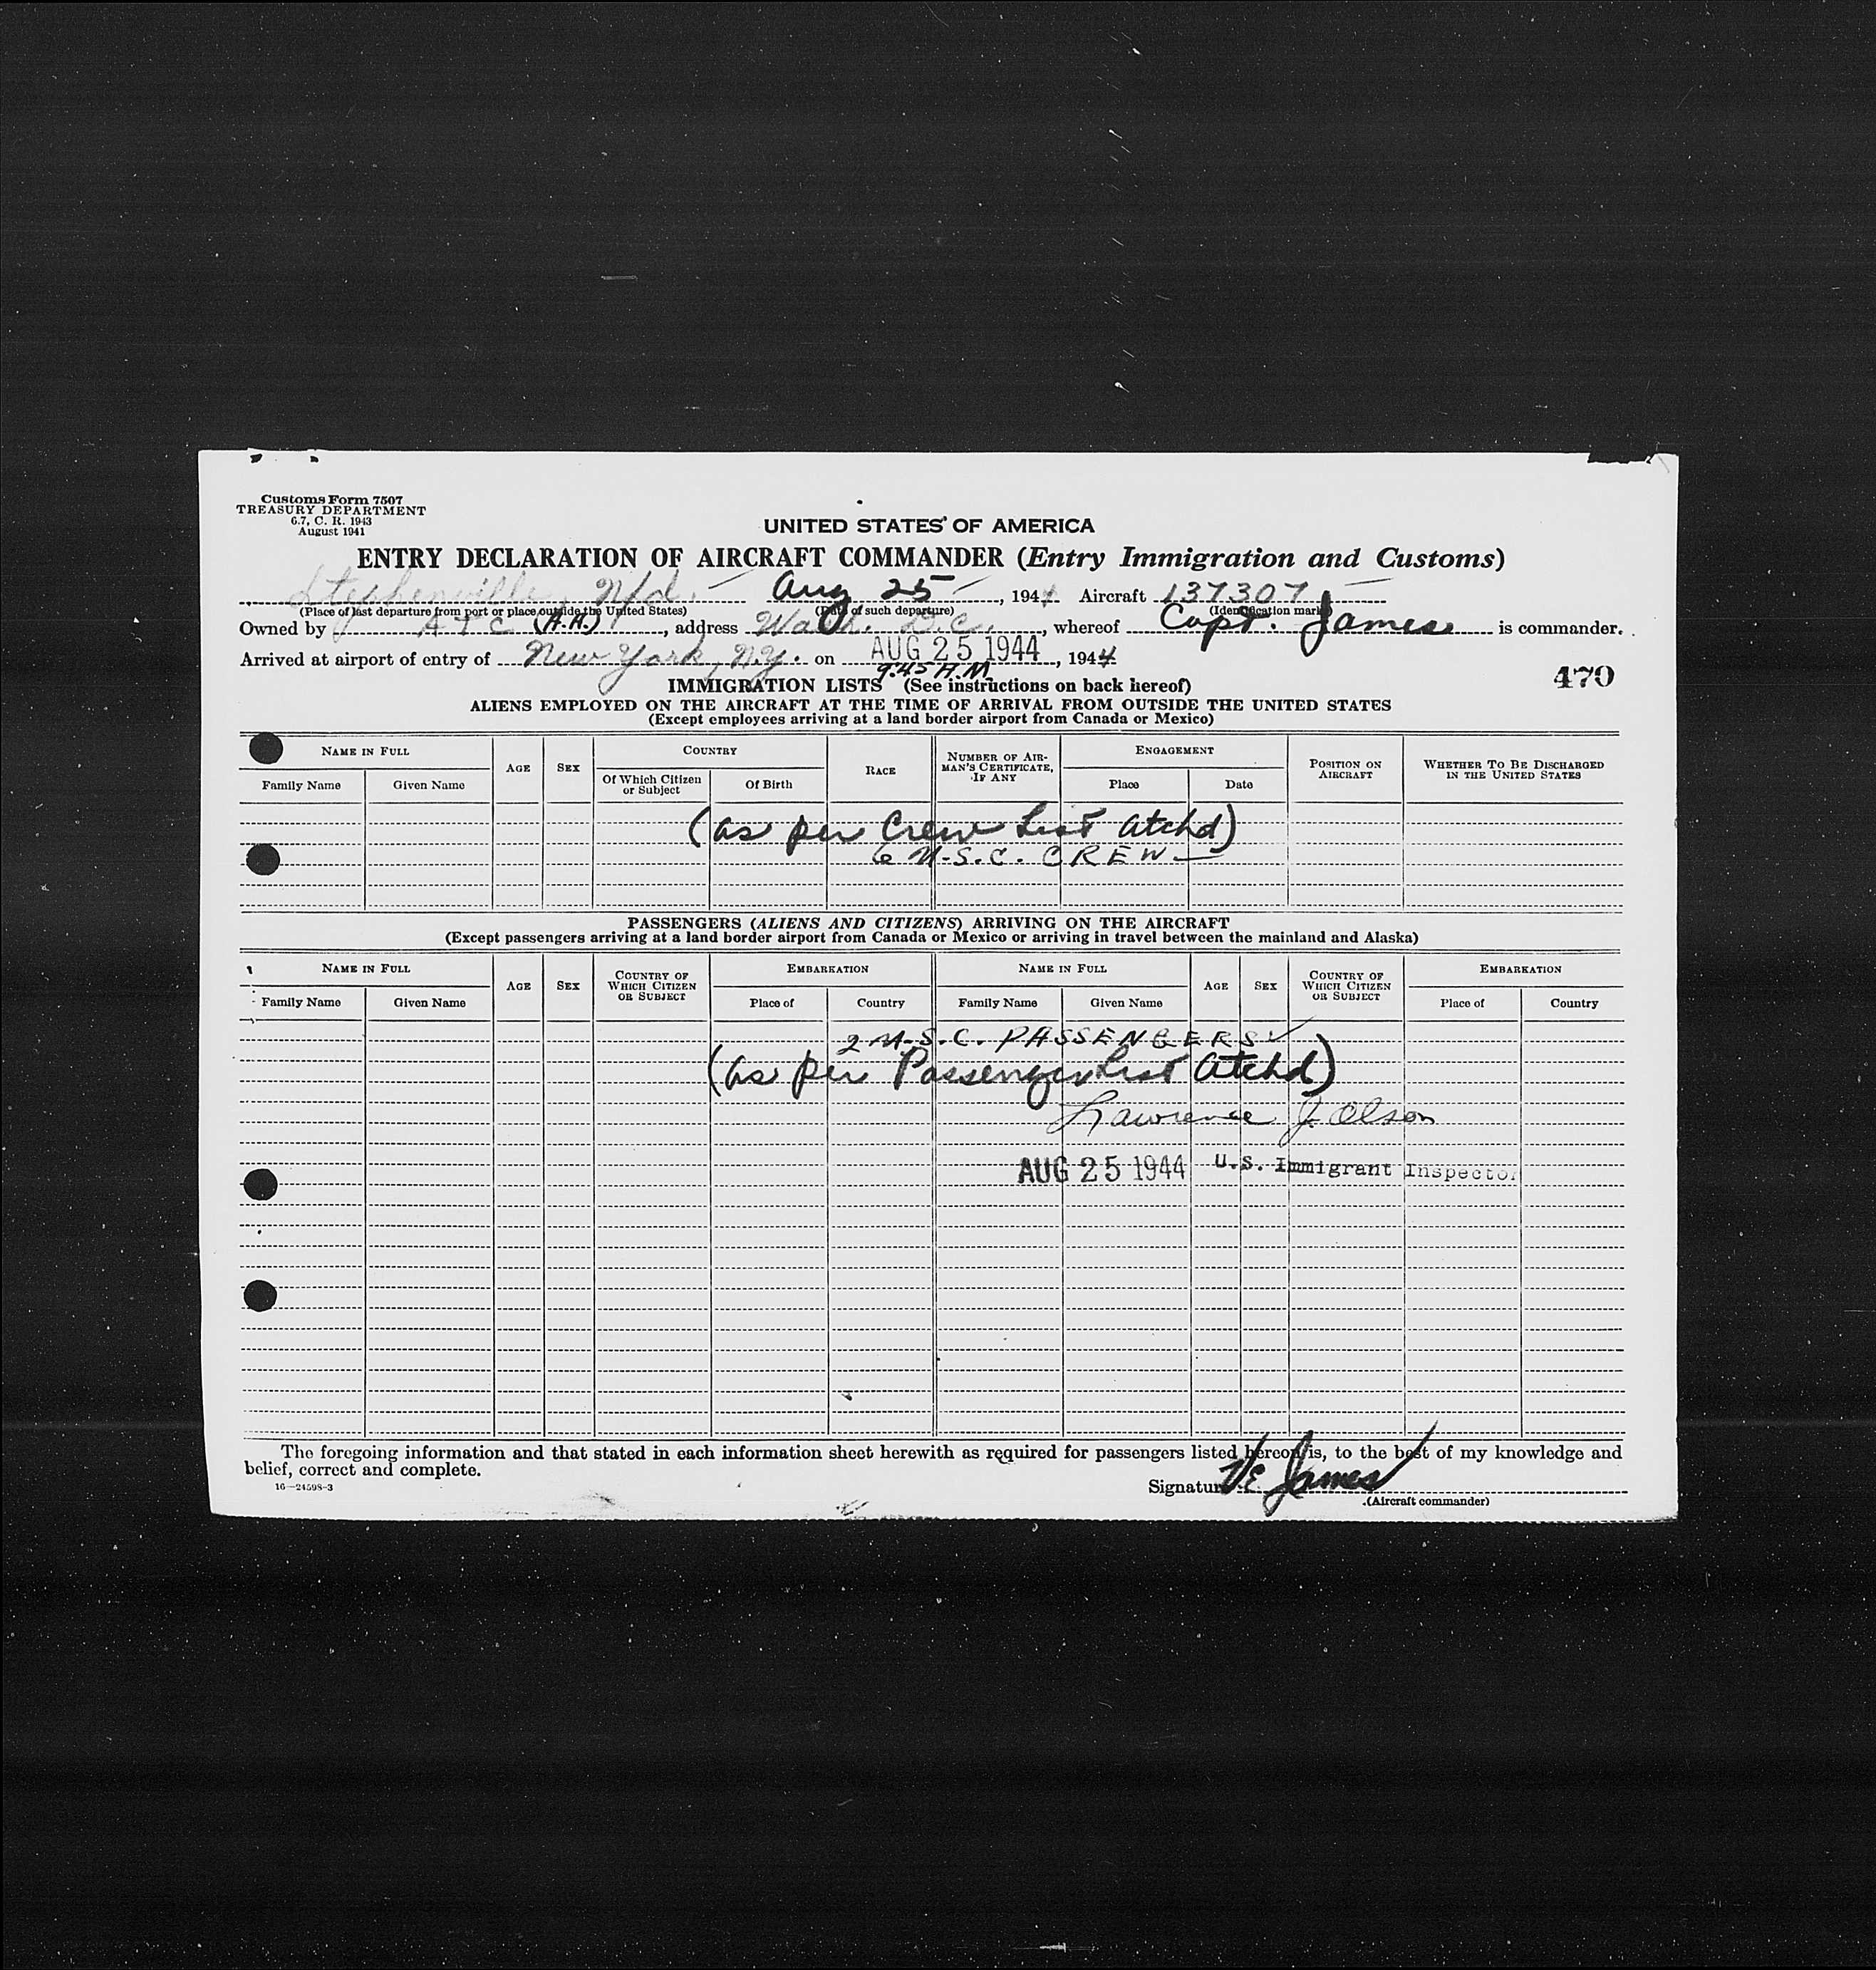 Customs Form 7507
TREASURY DEPARTMENT
6.7, C. R. 1943
August 1941
UNITED STATES OF AMERICA
ENTRY DECLARATION OF AIRCRAFT COMMANDER (Entry Immigration and Customs)
Stephenville, Nfd. Aug 25, 1944 Aircraft 137307
(Place of last departure from port or place outside the United States) (Date of such departure) (Identification mark)
Owned by ATC (A.A.), address Wash. D.C., whereof Capt. James is commander.
Arrived at airport of entry of New York, N.Y. on AUG 25 1944, 1944
9:45 A.M.
470
IMMIGRATION LISTS (See instructions on back hereof)
ALIENS EMPLOYED ON THE AIRCRAFT AT THE TIME OF ARRIVAL FROM OUTSIDE THE UNITED STATES
(Except employees arriving at a land border airport from Canada or Mexico)
NAME IN FULL AGE SEX COUNTRY RACE NUMBER OF AIRMAN'S CERTIFICATE, IF ANY ENGAGEMENT POSITION ON AIRCRAFT WHETHER TO BE DISCHARGED IN THE UNITED STATES
Family Name Given Name Of Which Citizen or Subject Of Birth Place Date
(as per Crew List atchd)
6 N.S.C. CREW
PASSENGERS (ALIENS AND CITIZENS) ARRIVING ON THE AIRCRAFT
(Except passengers arriving at a land border airport from Canada or Mexico or arriving in travel between the mainland and Alaska)
NAME IN FULL AGE SEX COUNTRY OF WHICH CITIZEN OR SUBJECT EMBARKATION NAME IN FULL AGE SEX COUNTRY OF WHICH CITIZEN OR SUBJECT EMBARKATION
Family Name Given Name Place of Country Family Name Given Name Place of Country
2 N.S.C. PASSENGERS
(as per Passenger List atchd)
Lawrence J. Olson
AUG 25 1944 U.S. Immigrant Inspector
The foregoing information and that stated in each information sheet herewith as required for passengers listed hereon is, to the best of my knowledge and
belief, correct and complete.
16—24598-3
Signature VE James
(Aircraft commander)